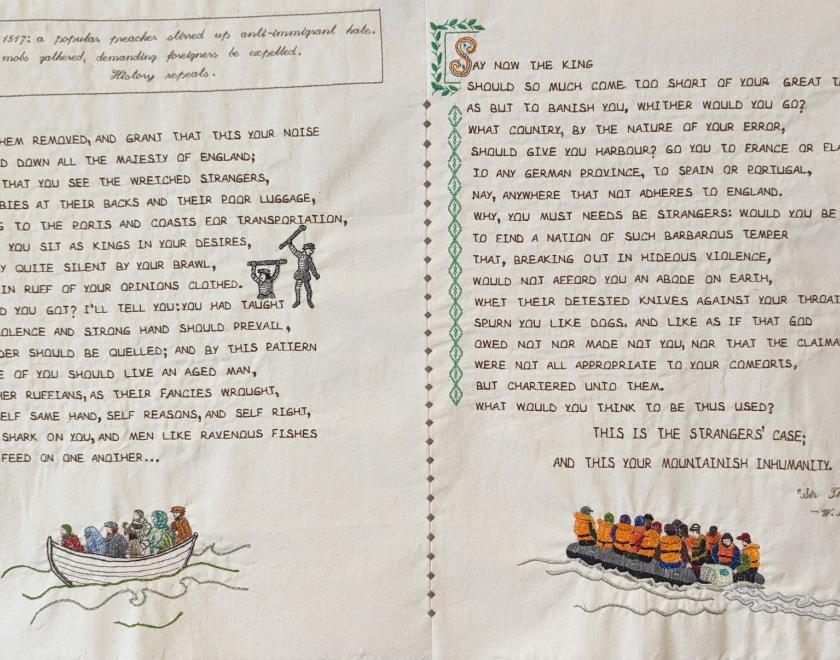 1517: a popular preacher stirred up anti-immigrant hate.
mobs gathered, demanding foreigners be expelled.
History repeats.
HEM REMOVED, AND GRANT THAT THIS YOUR NOISE
D DOWN ALL THE MAJESTY OF ENGLAND;
THAT YOU SEE THE WRETCHED STRANGERS,
BIES AT THEIR BACKS AND THEIR POOR LUGGAGE,
G TO THE PORTS AND COASTS FOR TRANSPORTATION,
YOU SIT AS KINGS IN YOUR DESIRES,
Y QUITE SILENT BY YOUR BRAWL,
IN RUFF OF YOUR OPINIONS CLOTHED.
D YOU GOT? I'LL TELL YOU: YOU HAD TAUGHT
OLENCE AND STRONG HAND SHOULD PREVAIL,
DER SHOULD BE QUELLED; AND BY THIS PATTERN
E OF YOU SHOULD LIVE AN AGED MAN,
HER RUFFIANS, AS THEIR FANCIES WROUGHT,
ELF SAME HAND, SELF REASONS, AND SELF RIGHT,
SHARK ON YOU, AND MEN LIKE RAVENOUS FISHES
FEED ON ONE ANOTHER...
SAY NOW THE KING
SHOULD SO MUCH COME TOO SHORT OF YOUR GREAT T
AS BUT TO BANISH YOU, WHITHER WOULD YOU GO?
WHAT COUNTRY, BY THE NATURE OF YOUR ERROR,
SHOULD GIVE YOU HARBOUR? GO YOU TO FRANCE OR FLA
TO ANY GERMAN PROVINCE, TO SPAIN OR PORTUGAL,
NAY, ANYWHERE THAT NOT ADHERES TO ENGLAND.
WHY, YOU MUST NEEDS BE STRANGERS: WOULD YOU BE
TO FIND A NATION OF SUCH BARBAROUS TEMPER
THAT, BREAKING OUT IN HIDEOUS VIOLENCE,
WOULD NOT AFFORD YOU AN ABODE ON EARTH,
WHET THEIR DETESTED KNIVES AGAINST YOUR THROAT
SPURN YOU LIKE DOGS. AND LIKE AS IF THAT GOD
OWED NOT NOR MADE NOT YOU, NOR THAT THE CLAIMA
WERE NOT ALL APPROPRIATE TO YOUR COMFORTS,
BUT CHARTERED UNTO THEM.
WHAT WOULD YOU THINK TO BE THUS USED?
THIS IS THE STRANGERS' CASE;
AND THIS YOUR MOUNTAINISH INHUMANITY.
"Sir Th
~ W.